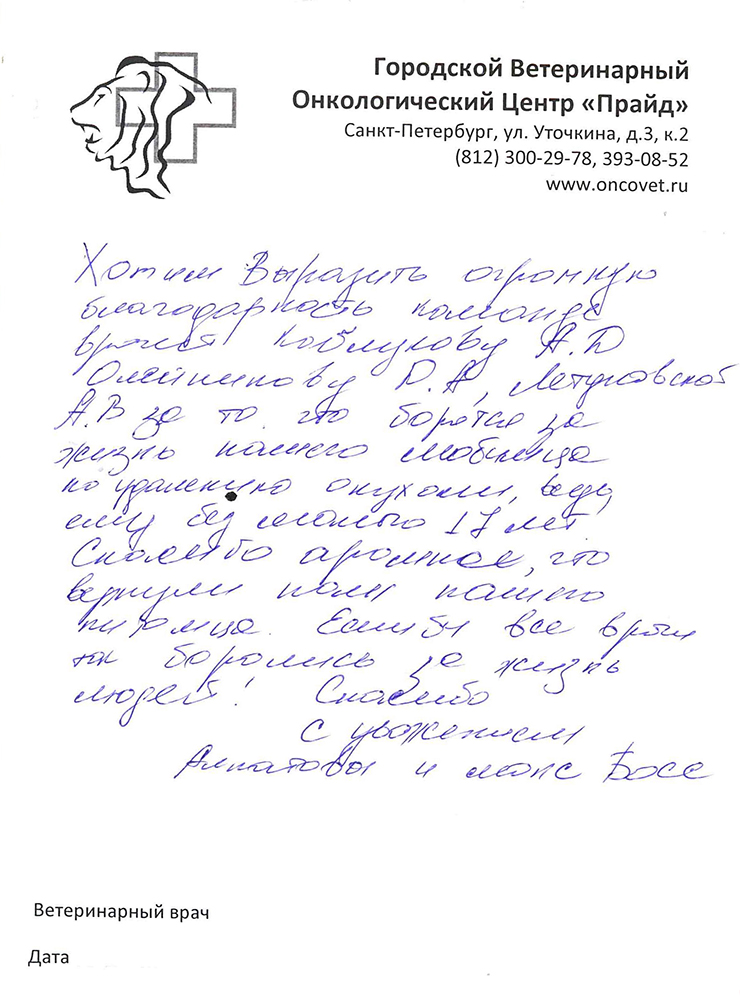 Городской Ветеринарный
Онкологический Центр «Прайд»
Санкт-Петербург, ул. Уточкина, д.3, к.2
(812) 300-29-78, 393-08-52
www.oncovet.ru
Хотим Выразить огромную
благодарность команде
врачей Каблукову А.Д
Олейникову Д.А,
А.В за то что борятся за
жизнь нашего любимца
по удалению опухоли, ведь
ему без малого 17 лет.
Спасибо огромное, что
вернули нам нашего
питомца. Еслибы все врачи
так боролись за жизнь
людей! Спасибо
С уважением
Алпатовы и мопс Босс
Ветеринарный врач
Дата